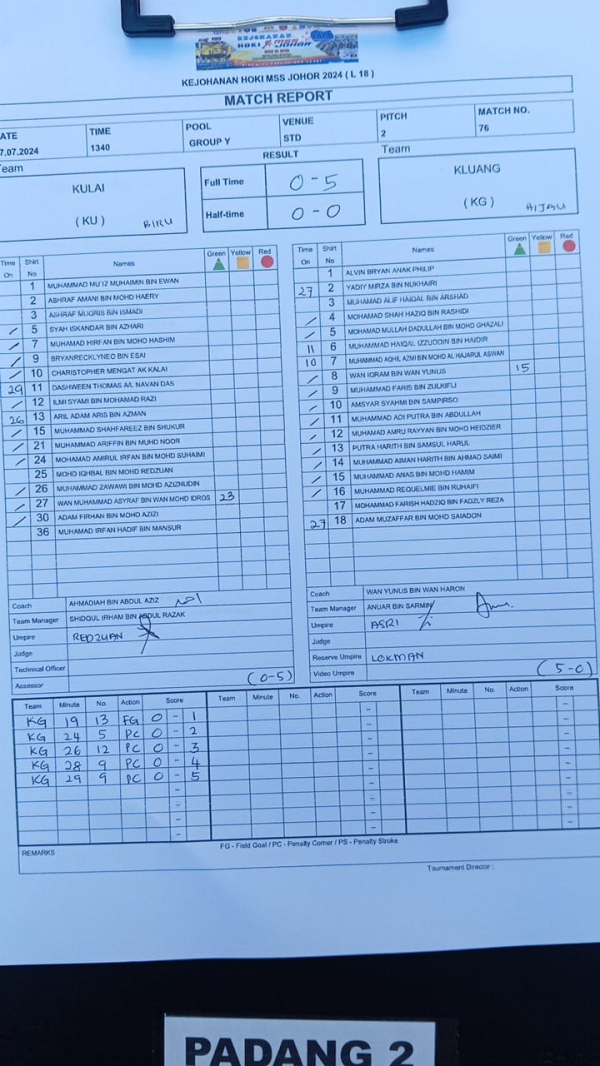 KEJOHANAN HOKI MSS JOHOR 2024 ( L 18 )
MATCH REPORT
ATE TIME POOL VENUE PITCH MATCH NO.
7.07.2024 1340 GROUP Y STD 2 76
eam RESULT Team
KULAI Full Time 0 - 5 KLUANG
( KU ) BIRU Half-time 0 - 0 ( KG ) HIJAU
Time On Shirt No Names Green Yellow Red
1 MUHAMMAD MU'IZ MUHAIMIN BIN EWAN
2 ASHRAF AMANI BIN MOHD HAERY
3 ASHRAF MUQRIS BIN ISMADI
/ 5 SYAH ISKANDAR BIN AZHARI
/ 7 MUHAMAD HIRFAN BIN MOHD HASHIM
/ 9 BRYANRECKLYNEO BIN ESAI
/ 10 CHARISTOPHER MENGAT AK KALAI
29 11 DASHWEEN THOMAS A/L NAVAN DAS
/ 12 ILMI SYAMI BIN MOHAMAD RAZI
26 13 ARIL ADAM ARIS BIN AZMAN
/ 15 MUHAMMAD SHAHFAREEZ BIN SHUKUR
/ 21 MUHAMMAD ARIFFIN BIN MUHD NOOR
/ 24 MOHAMAD AMIRUL IRFAN BIN MOHD SUHAIMI
25 MOHD IQHBAL BIN MOHD REDZUAN
/ 26 MUHAMMAD ZAWAWI BIN MOHD AZIZNUDIN
/ 27 WAN MUHAMMAD ASYRAF BIN WAN MOHD IDROS 23
/ 30 ADAM FIRHAN BIN MOHD AZIZI
36 MUHAMAD IRFAN HADIF BIN MANSUR
Coach AHMADIAH BIN ABDUL AZIZ
Team Manager SHIDQUL IRHAM BIN ABDUL RAZAK
Umpire REDZUAN
Judge
Technical Officer
Assessor (0-5)
Time On Shirt No Names Green Yellow Red
1 ALVIN BRYAN ANAK PHILIP
27 2 YADIY MIRZA BIN NUKHAIRI
3 MUHAMAD ALIF HAIQAL BIN ARSHAD
/ 4 MOHAMAD SHAH HAZIQ BIN RASHIDI
/ 5 MOHAD MULLAH DADULLAH BIN MOHD GHAZALI
11 6 MUHAMMAD HAIQAL IZZUDDIN BIN HAIDIR
10 7 MUHAMMAD AQHIL AZMI BIN MOHD AL HAJARUL ASWAN
/ 8 WAN IQRAM BIN WAN YUNUS 15
/ 9 MUHAMMAD FARIS BIN ZULKIFLI
/ 10 AMSYAR SYAHMI BIN SAMPIRSO
/ 11 MUHAMMAD ADI PUTRA BIN ABDULLAH
/ 12 MUHAMMAD AMRU RAYYAN BIN MOHD HEIDZIER
/ 13 PUTRA HARITH BIN SAMSUL HARUL
/ 14 MUHAMMAD AIMAN HARITH BIN AHMAD SAIMI
/ 15 MUHAMMAD ANAS BIN MOHD HAMIM
/ 16 MUHAMMAD REQUELMIE BIN RUHAIFI
17 MOHAMMAD FARISH HADZIQ BIN FADZLY REZA
27 18 ADAM MUZAFFAR BIN MOHD SAIADON
Coach WAN YUNUS BIN WAN HARON
Team Manager ANUAR BIN SARMIN
Umpire ASRI
Judge
Reserve Umpire LOKMAN
Video Umpire (5-0)
Team Minute No. Action Score Team Minute No. Action Score Team Minute No. Action Score
KG 19 13 FG 0 - 1
KG 24 5 PC 0 - 2
KG 26 12 PC 0 - 3
KG 28 9 PC 0 - 4
KG 29 9 PC 0 - 5
REMARKS FG - Field Goal / PC - Penalty Corner / PS - Penalty Stroke
Tournament Director :
PADANG 2